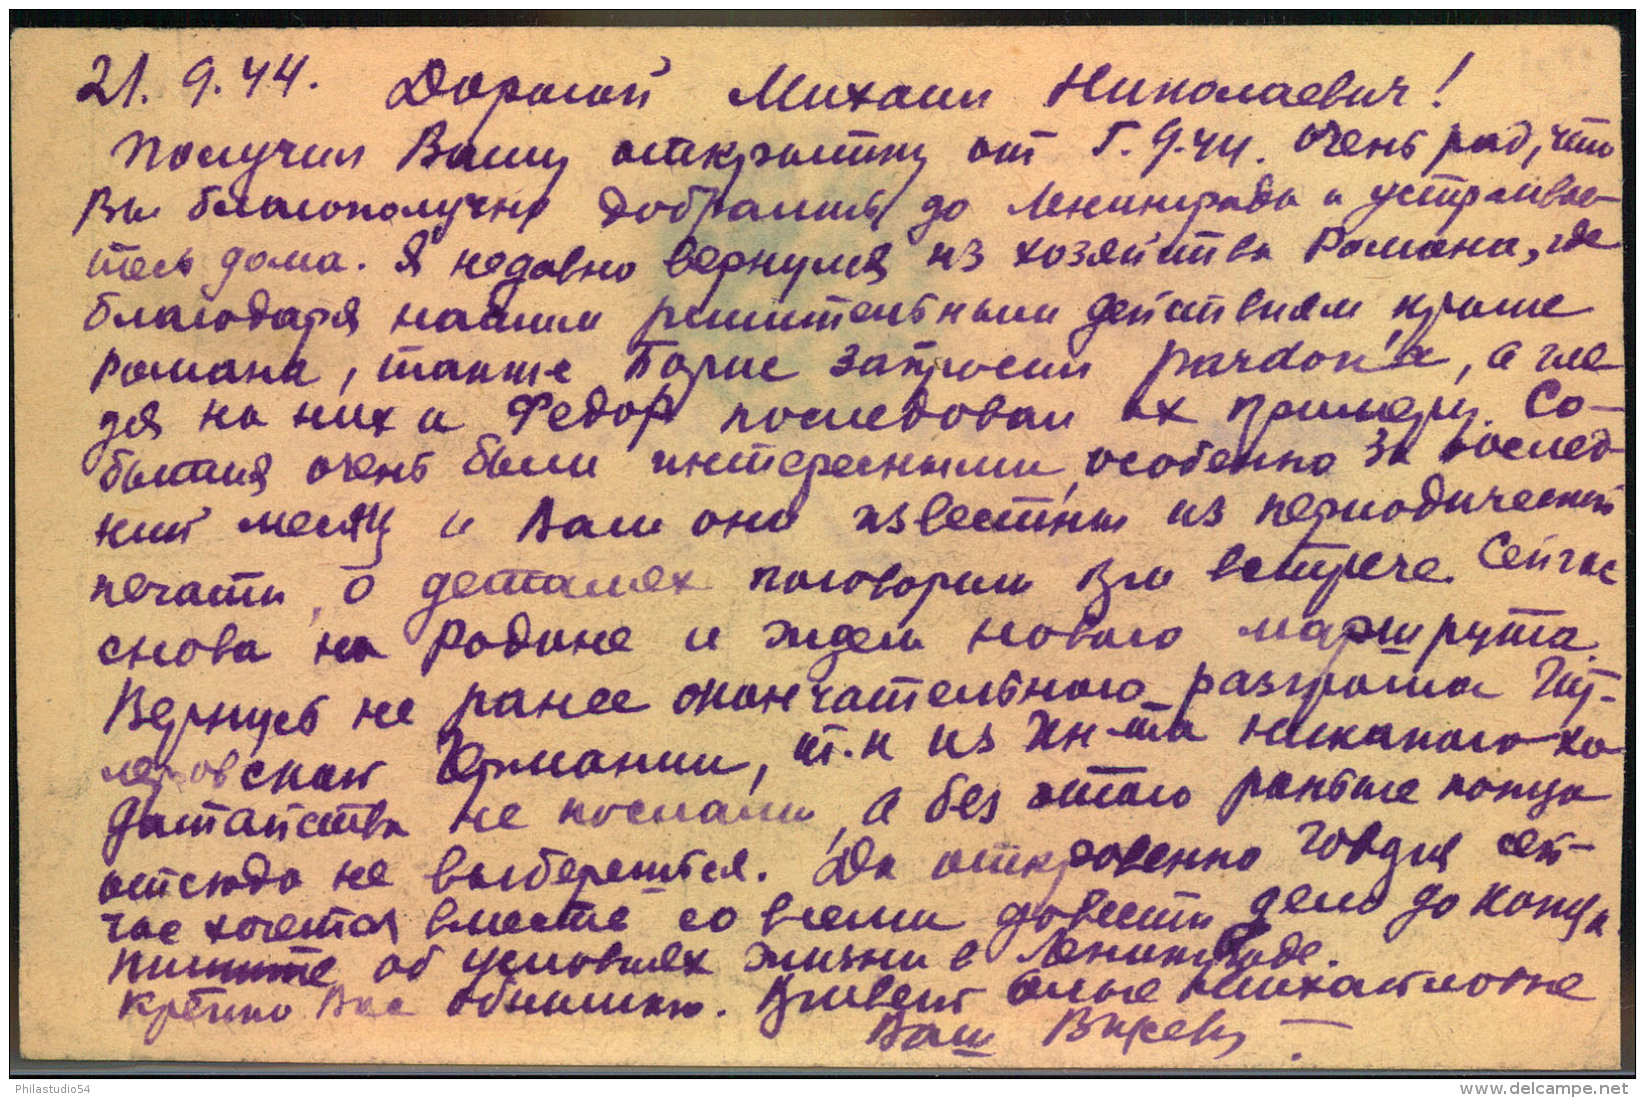 21.9.44. Дорогой Михаил Николаевич!
Получил Вашу открытку от 5.9.44. Очень рад, что
Вы благополучно добрались до Ленинграда и устраивае-
тесь дома. Я недавно вернулся из хозяйства Романа, где
благодаря нашим решительным действиям кроме
Романа, также Борис запросил pardon'a, а гля-
дя на них и Федор последовал их примеру. Со-
бытия очень были интересными, особенно за послед-
ний месяц и Вам они известны из периодической
печати, о деталях поговорим при встрече. Сейчас
снова на Родине и ждем нового маршрута.
Вернусь не ранее окончательного разгрома Гит-
леровской Германии, т.к из Ин-та никакого хо-
датайства не послали, а без этого раньше конца
отсюда не выберешься. Да откровенно говоря сей-
час хочется вместе со всеми довести дело до конца.
Пишите об условиях жизни в Ленинграде.
Крепко Вас обнимаю. Привет Ольге Михайловне
Ваш
Philastudio54
delcampe.net